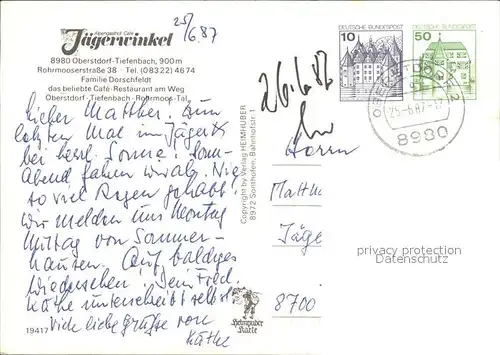 25/6.87
Alpengasthof Café
Jägerwinkel
8980 Oberstdorf-Tiefenbach, 900 m
Rohrmooserstraße 38 Tel. (0 83 22) 46 74
Familie Dorschfeldt
das beliebte Café-Restaurant am Weg
Oberstdorf-Tiefenbach-Rohrmoos-Tal
Lieber Matthes. Zum
letzten Mal im Jägerw
bei herrl. Sonne! Sonn-
Abend fahren wir ab. Nie
so viel Regen gehabt!
Wir melden uns Montag
Mittag von Sommer-
hausen. Auf baldiges
Wiedersehen! Dein
Käthe unterschreibt selbst.
Viele liebe Grüsse von
Käthe
19417
Copyright by Verlag HEIMHUBER
8972 Sonthofen, Bahnhofstr. 1
Heimhuber
Karte
26.6.87
DEUTSCHE BUNDESPOST
10
DEUTSCHE BUNDESPOST
50
25.-6.87-17
8980
Herrn
Matth
Jäge
8700
privacy protection
Datenschutz